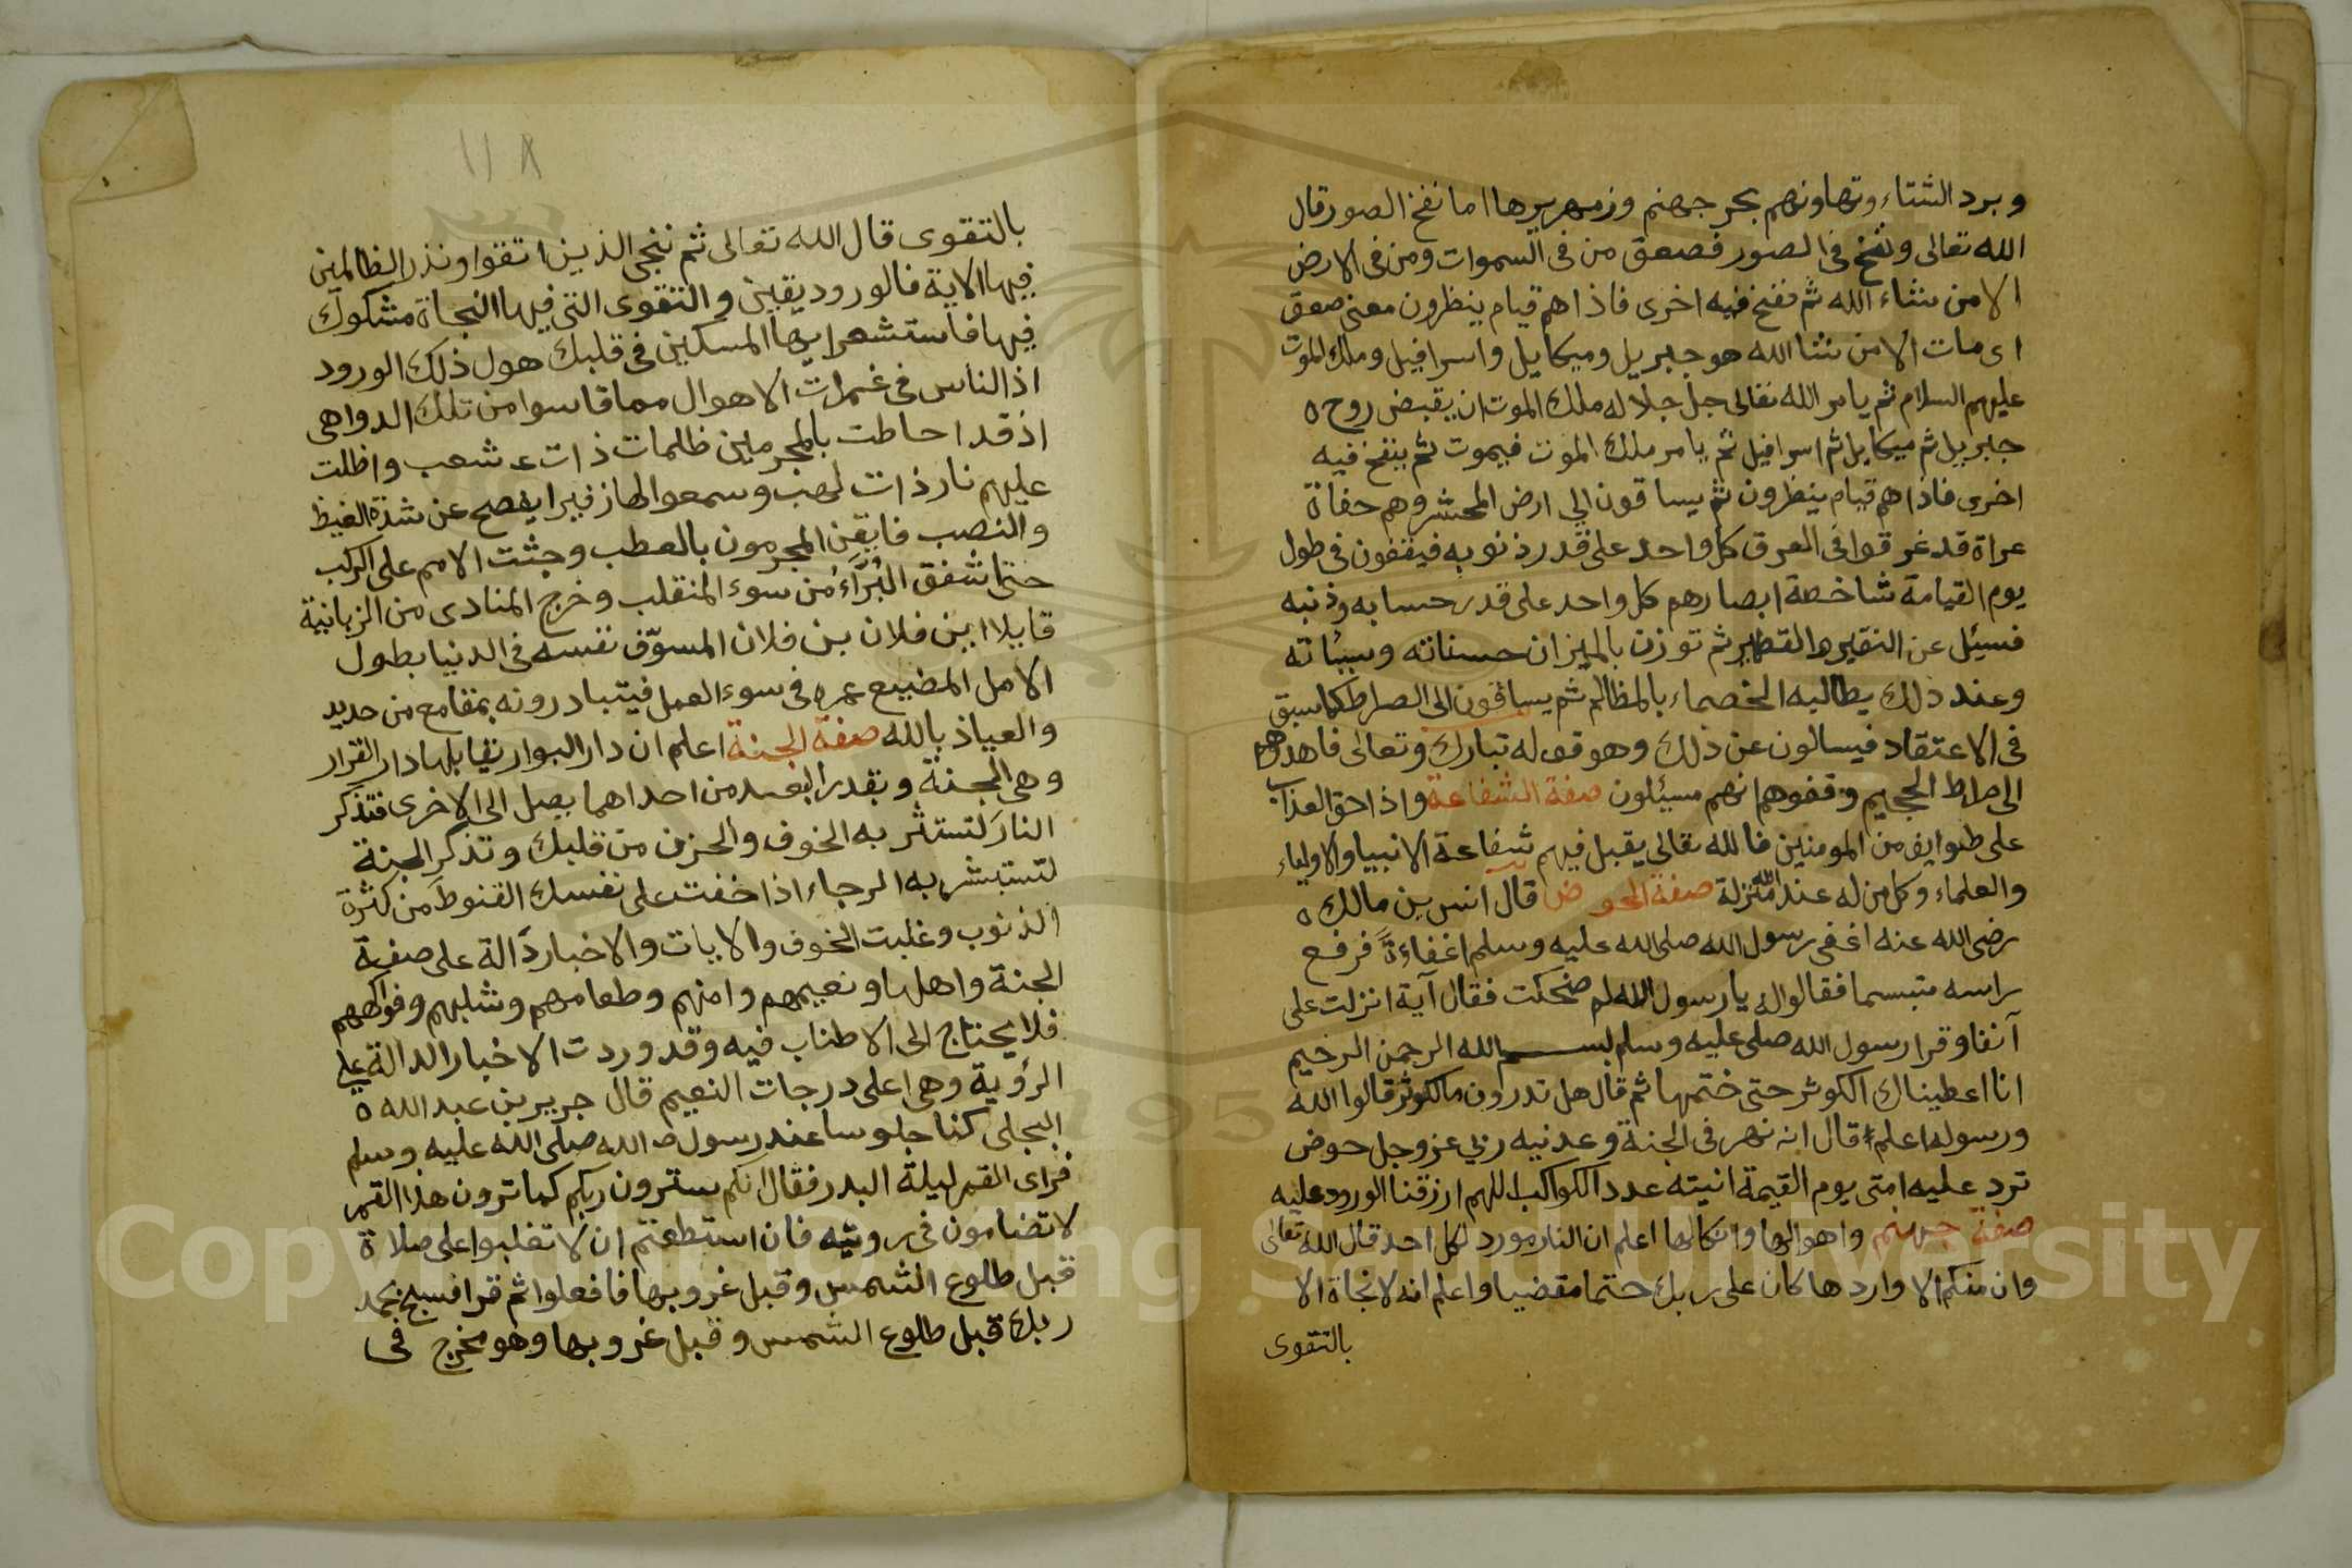 وبرد الشتاء وتهاونهم بحر جهنم وزمهريرها اما نفخ الصور قال
الله تعالى ونفخ في الصور فصعق من في السموات ومن في الارض
الا من شاء الله ثم نفخ فيه اخرى فاذا هم قيام ينظرون معنى صعق
اى مات الا من شا الله هو جبريل وميكايل واسرافيل وملك الموت
عليهم السلام ثم يامر الله تعالى جل جلاله ملك الموت ان يقبض روح ه
جبريل ثم ميكايل ثم اسرافيل ثم يامر ملك الموت فيموت ثم ينفخ فيه
اخرى فاذا هم قيام ينظرون ثم يساقون الي ارض المحشر وهم حفاة
عراة قد غرقوا في العرق كل واحد على قدر ذنوبه فيقفون في طول
يوم القيامة شاخصة ابصارهم كل واحد على قدر حسابه وذنبه
فسيئل عن النقير والقطمير ثم توزن بالميزان حسناته وسيئاته
وعند ذلك يطالبه الخصماء بالمظالم ثم يساقون الى الصراط كما سبق
في الاعتقاد فيسالون عن ذلك وهو قوله تبارك وتعالى فاهدوهم
الى صراط الجحيم وقفوهم انهم مسئلون صفة الشفاعة واذا حق العذاب
على طوايف من المومنين فالله تعالى يقبل فيهم شفاعة الانبيا والاولياء
والعلماء وكل من له عند الله منزلة صفة الحوض قال انس بن مالك ه
رضى الله عنه اغفى رسول الله صلى الله عليه وسلم اغفاءةً فرفع
راسه متبسما فقالوا له يا رسول الله لم ضحكت فقال آية انزلت على
آنفا وقرا رسول الله صلى عليه وسلم بسم الله الرحمن الرحيم
انا اعطيناك الكوثر حتى ختمها ثم قال هل تدرون ما الكوثر قالوا الله
ورسوله اعلم قال انه نهر في الجنة وعدنيه ربي عز وجل حوض
ترد عليه امتى يوم القيمة انيته عدد الكواكب اللهم ارزقنا الورود عليه
صفة جهنم واهوالها وانكالها اعلم ان النار مورد لكل احد قال الله تعالى
وان منكم الا واردها كان على ربك حتما مقضيا واعلم انه لا نجاة الا
بالتقوى
١١٨
بالتقوى قال الله تعالى ثم ننجى الذين اتقوا ونذر الظالمين
فيها الاية فالورود يقين والتقوى التى فيها النجاة مشكوك
فيها فاستشعر ايها المسكين في قلبك هول ذلك الورود
اذ الناس في غمرات الاهوال مما قاسوا من تلك الدواهى
اذ قد احاطت بالمجرمين ظلمات ذات شعب واظلت
عليهم نار ذات لهب وسمعوا لها زفيرا يفصح عن شدة الغيظ
والنصب فايقن المجرمون بالعطب وجثت الامم على الركب
حتى اشفق البُرَآءُ من سوء المنقلب وخرج المنادى من الزبانية
قايلا اين فلان بن فلان المسوّف نفسه في الدنيا بطول
الامل المضيع عمره في سوء العمل فيتبادرونه بمقامع من حديد
والعياذ بالله صفة الجنة اعلم ان دار البوار يقابلها دار القرار
وهي الجنة وبقدر البعد من احداهما يصل الى الاخرى فتذكر
النار لتستثر به الخوف والحزن من قلبك وتذكر الجنة
لتستبشر به الرجاء اذا خفت على نفسك القنوط من كثرة
الذنوب وغلبت الخوف والايات والاخبار دآلة على صفة
الجنة واهلها ونعيمهم وامنهم وطعامهم وشرابهم وفواكههم
فلا يحتاج الى الاطناب فيه وقد وردت الاخبار الدالة على
الرؤية وهي اعلى درجات النعيم قال جرير بن عبد الله ه
البجلى كنا جلوسا عند رسول الله صلى الله عليه وسلم
فراى القمر ليلة البدر فقال انكم سترون ربكم كما ترون هذا القمر
لا تضامون في رويته فان استطعتم ان لا تغلبوا على صلاة
قبل طلوع الشمس وقبل غروبها فافعلوا ثم قرا فسبح بحمد
ربك قبل طلوع الشمس وقبل غروبها وهو مخرج في
Copyright © King Saud University